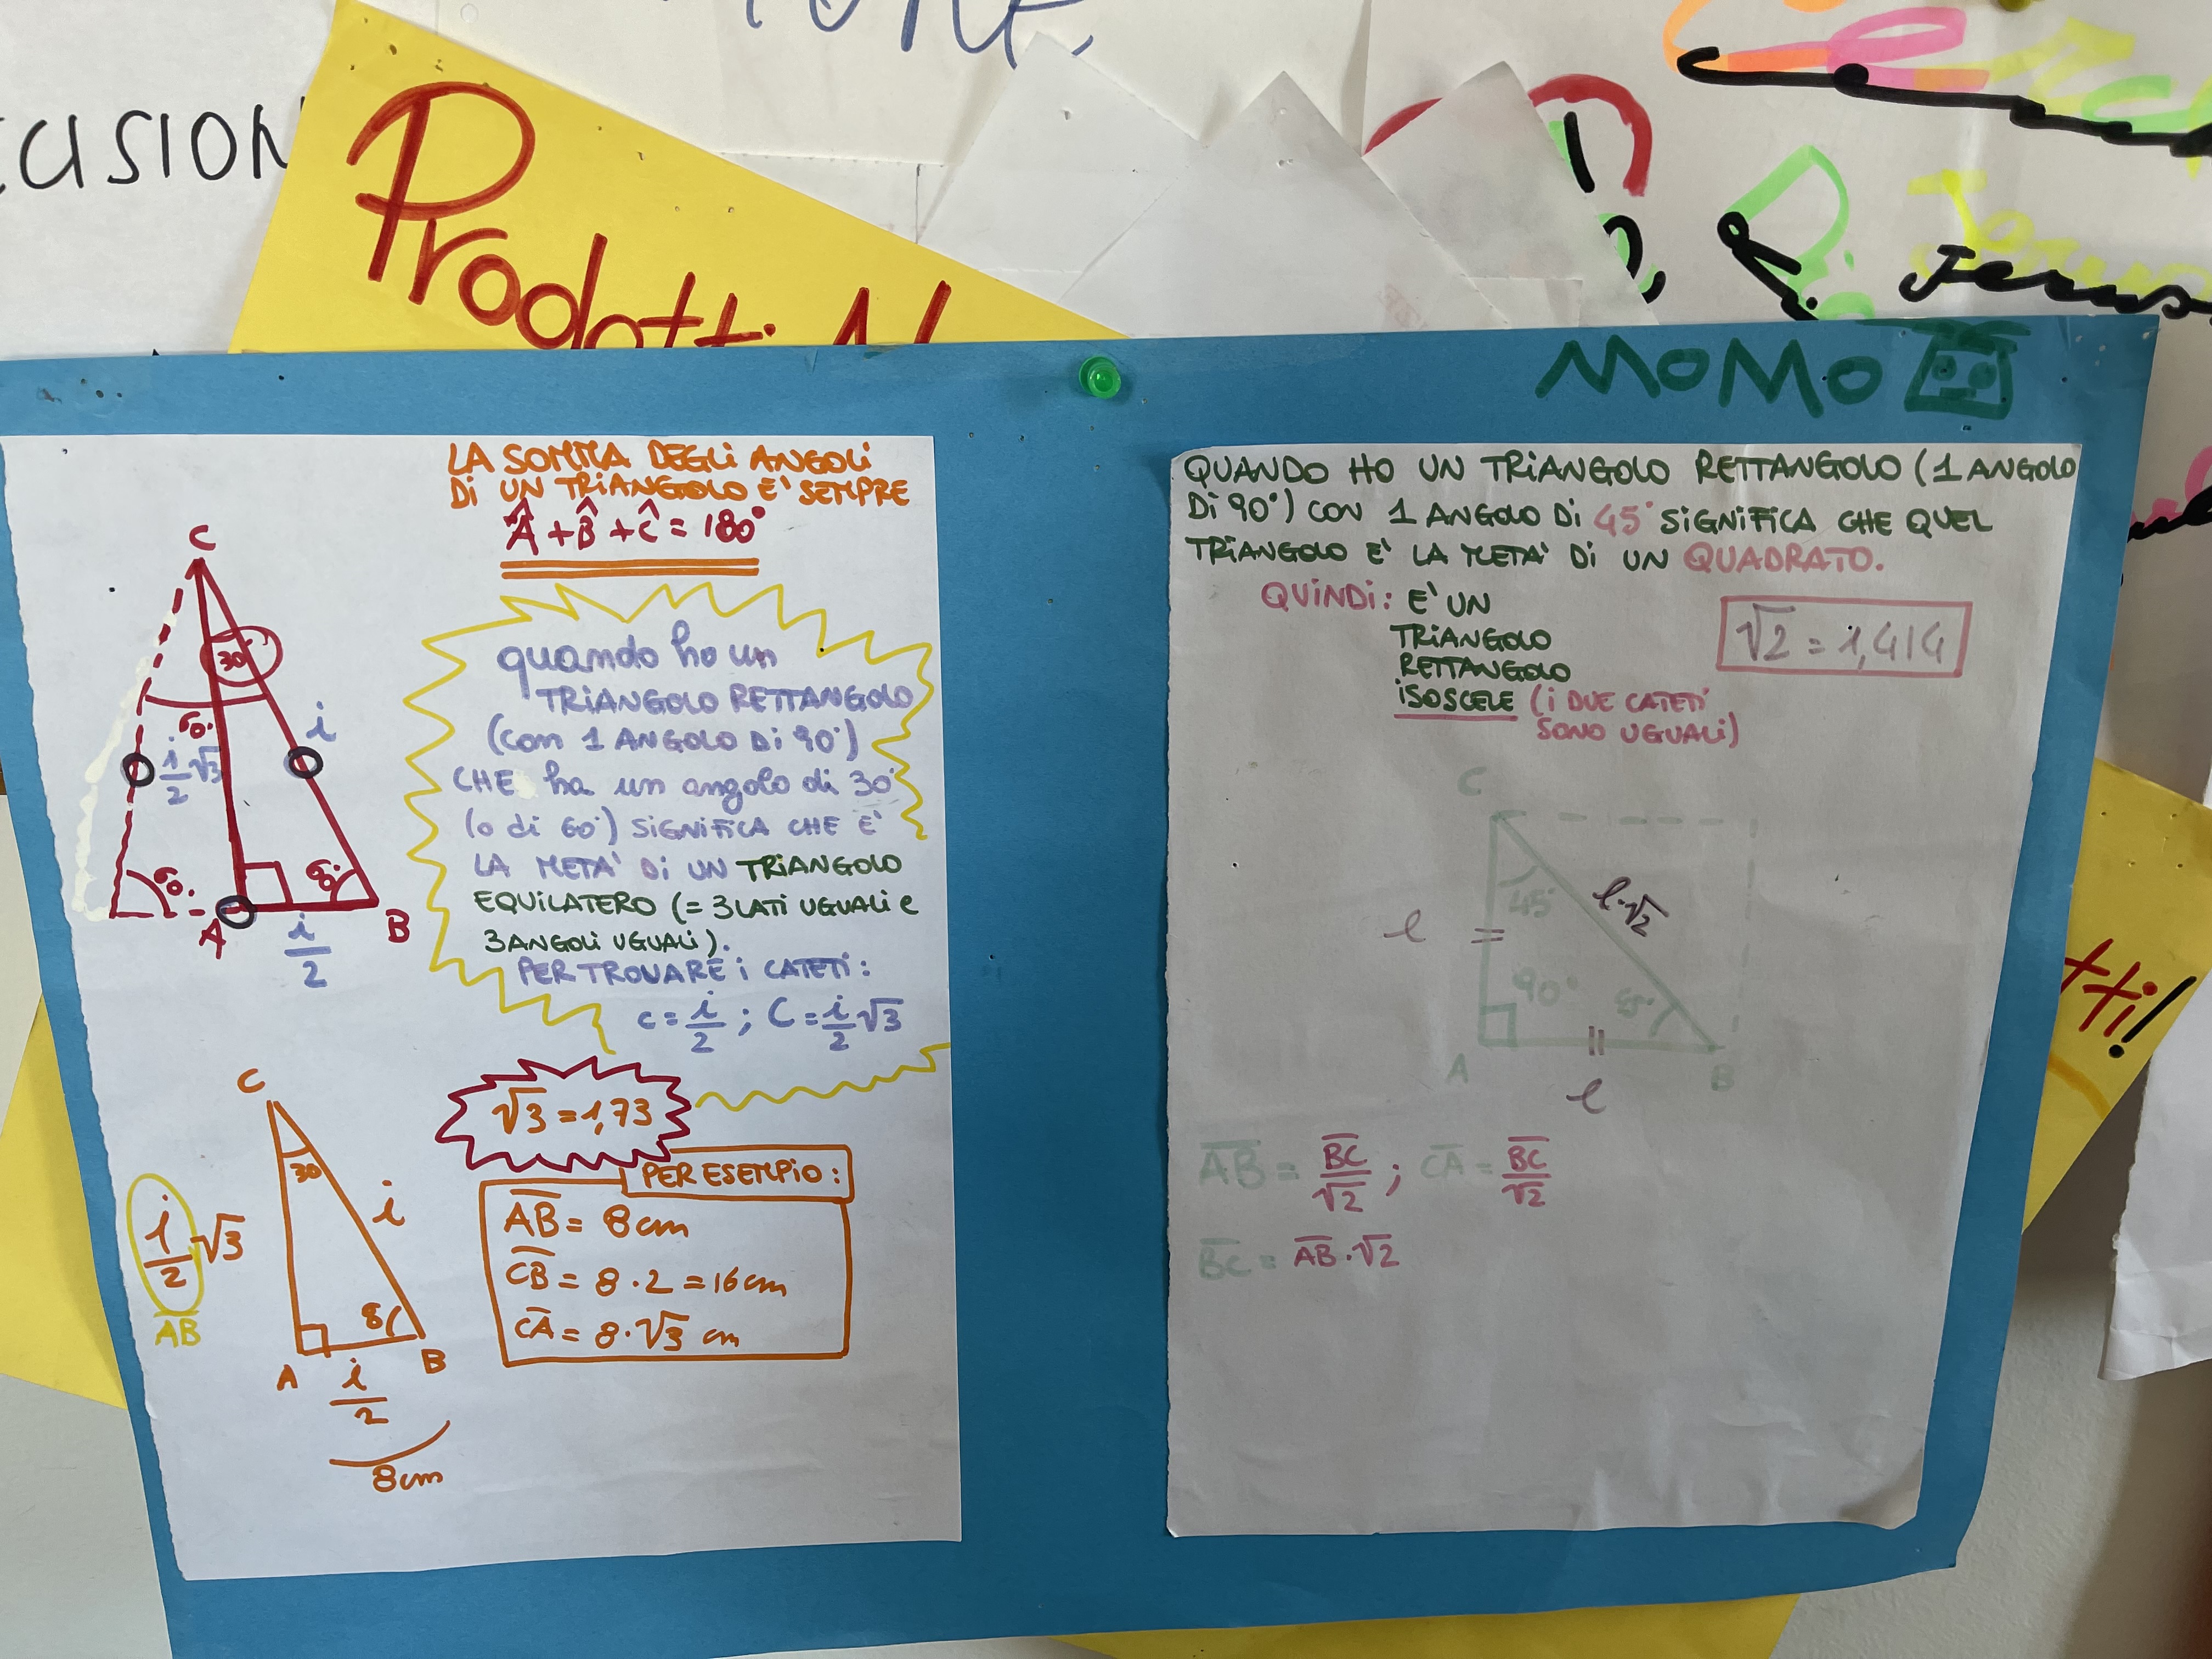 Prodotti N
MOMO
LA SOMMA DEGLI ANGOLI
DI UN TRIANGOLO E' SEMPRE
Â + B̂ + Ĉ = 180°
C
30°
60°
i
i/2 √3
60°
60°
A
B
i/2
quando ho un
TRIANGOLO RETTANGOLO
(con 1 ANGOLO DI 90°)
CHE ha un angolo di 30°
(o di 60°) SIGNIFICA CHE E'
LA META' DI UN TRIANGOLO
EQUILATERO (= 3 LATI UGUALI e
3 ANGOLI UGUALI).
PER TROVARE i CATETI:
c = i/2 ; C = i/2 √3
√3 = 1,73
C
30
i
i/2 √3
AB
A
B
i/2
8cm
PER ESEMPIO:
A̅B̅ = 8cm
C̅B̅ = 8 · 2 = 16cm
C̅A̅ = 8 · √3 cm
QUANDO HO UN TRIANGOLO RETTANGOLO (1 ANGOLO
DI 90°) CON 1 ANGOLO DI 45° SIGNIFICA CHE QUEL
TRIANGOLO E' LA META' DI UN QUADRATO.
QUINDI: E' UN
TRIANGOLO
RETTANGOLO
ISOSCELE (i DUE CATETI
SONO UGUALI)
√2 = 1,414
C
45°
l·√2
l
90°
45°
A
B
l
A̅B̅ = B̅C̅/√2 ; C̅A̅ = B̅C̅/√2
B̅C̅ = A̅B̅ · √2
tti!